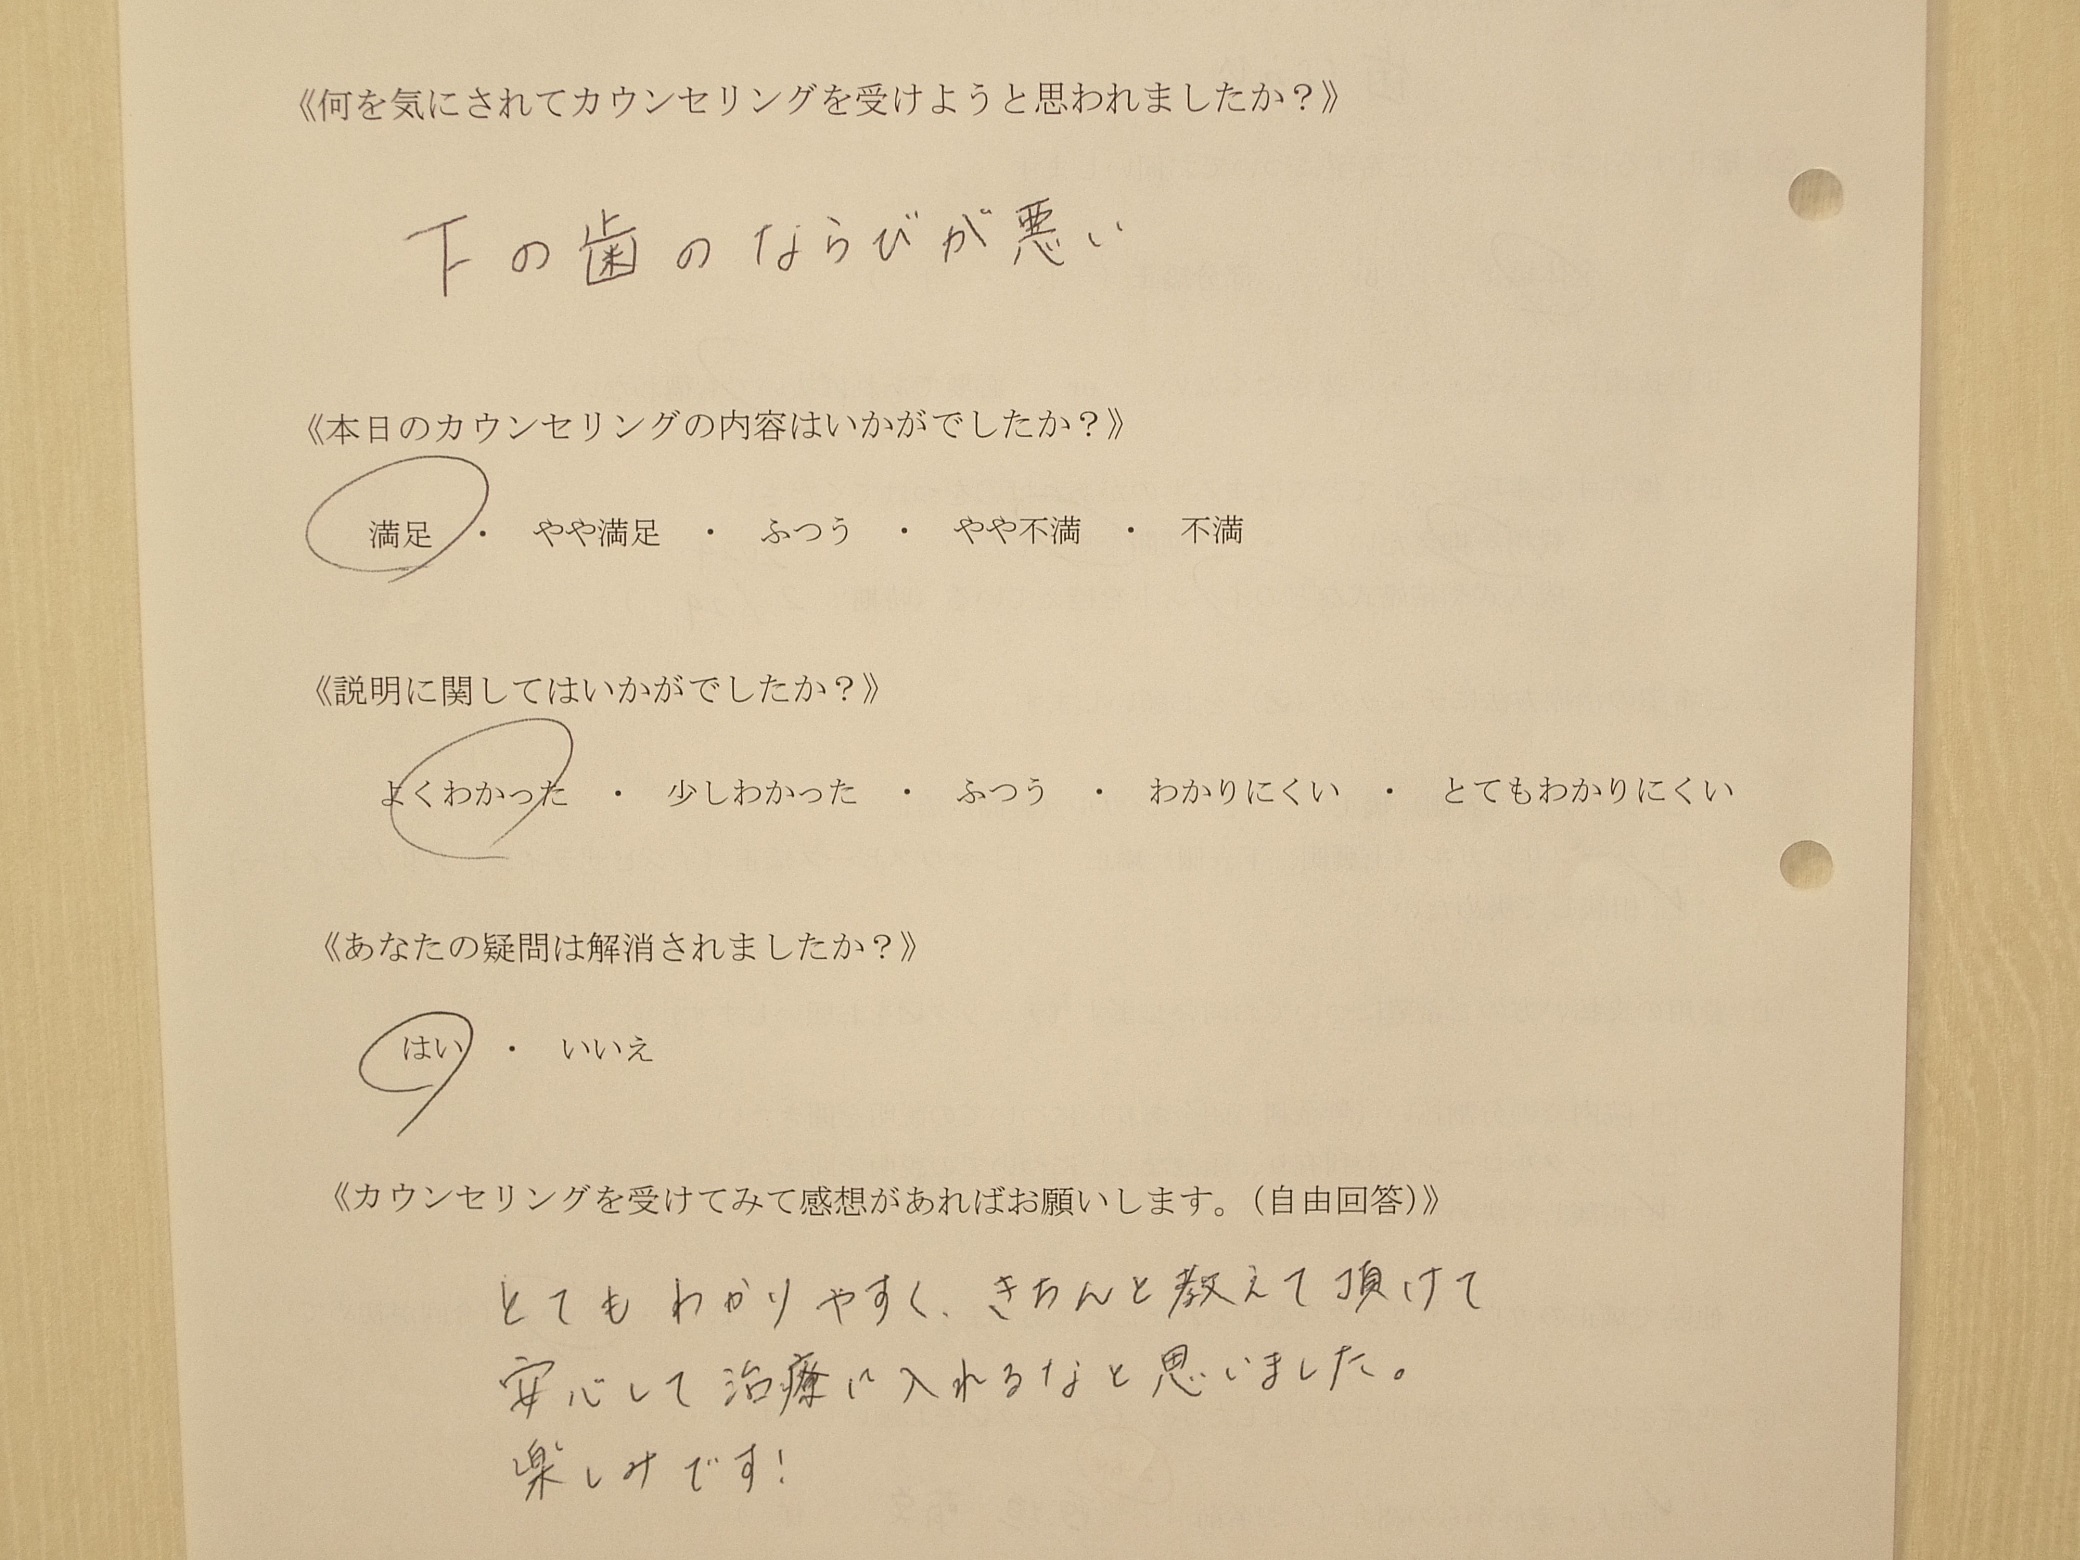 《何を気にされてカウンセリングを受けようと思われましたか？》
下の歯のならびが悪い
《本日のカウンセリングの内容はいかがでしたか？》
満足 ・ やや満足 ・ ふつう ・ やや不満 ・ 不満
《説明に関してはいかがでしたか？》
よくわかった ・ 少しわかった ・ ふつう ・ わかりにくい ・ とてもわかりにくい
《あなたの疑問は解消されましたか？》
はい ・ いいえ
《カウンセリングを受けてみて感想があればお願いします。（自由回答）》
とてもわかりやすく、きちんと教えて頂けて
安心して治療に入れるなと思いました。
楽しみです！